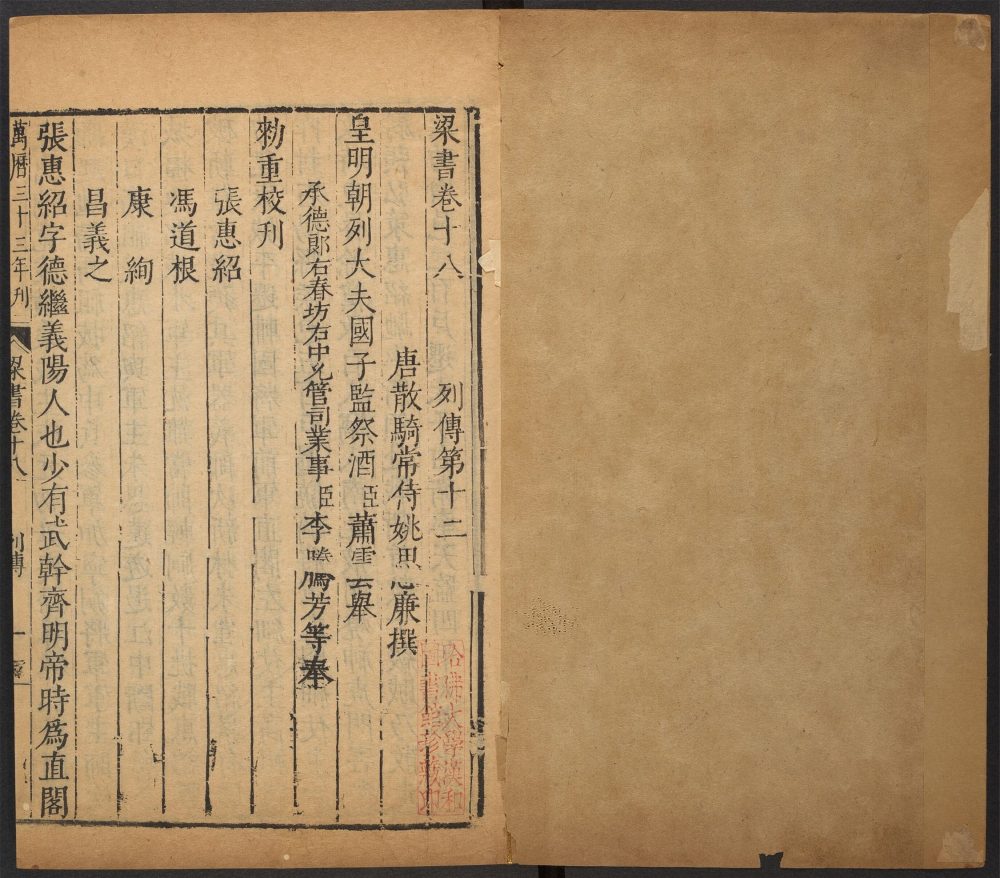 梁書卷十八 列傳第十二
唐散騎常侍姚思廉撰
皇明朝列大夫國子監祭酒臣蕭雲舉
承德郎右春坊右中允管司業事臣李騰芳等奉
勑重校刋
張惠紹
馮道根
康絢
昌義之
張惠紹字德繼義陽人也少有武幹齊明帝時為直閣
萬曆三十三年刋 梁書卷十八 列傳 一
哈佛大學漢和
圖書館珍藏印